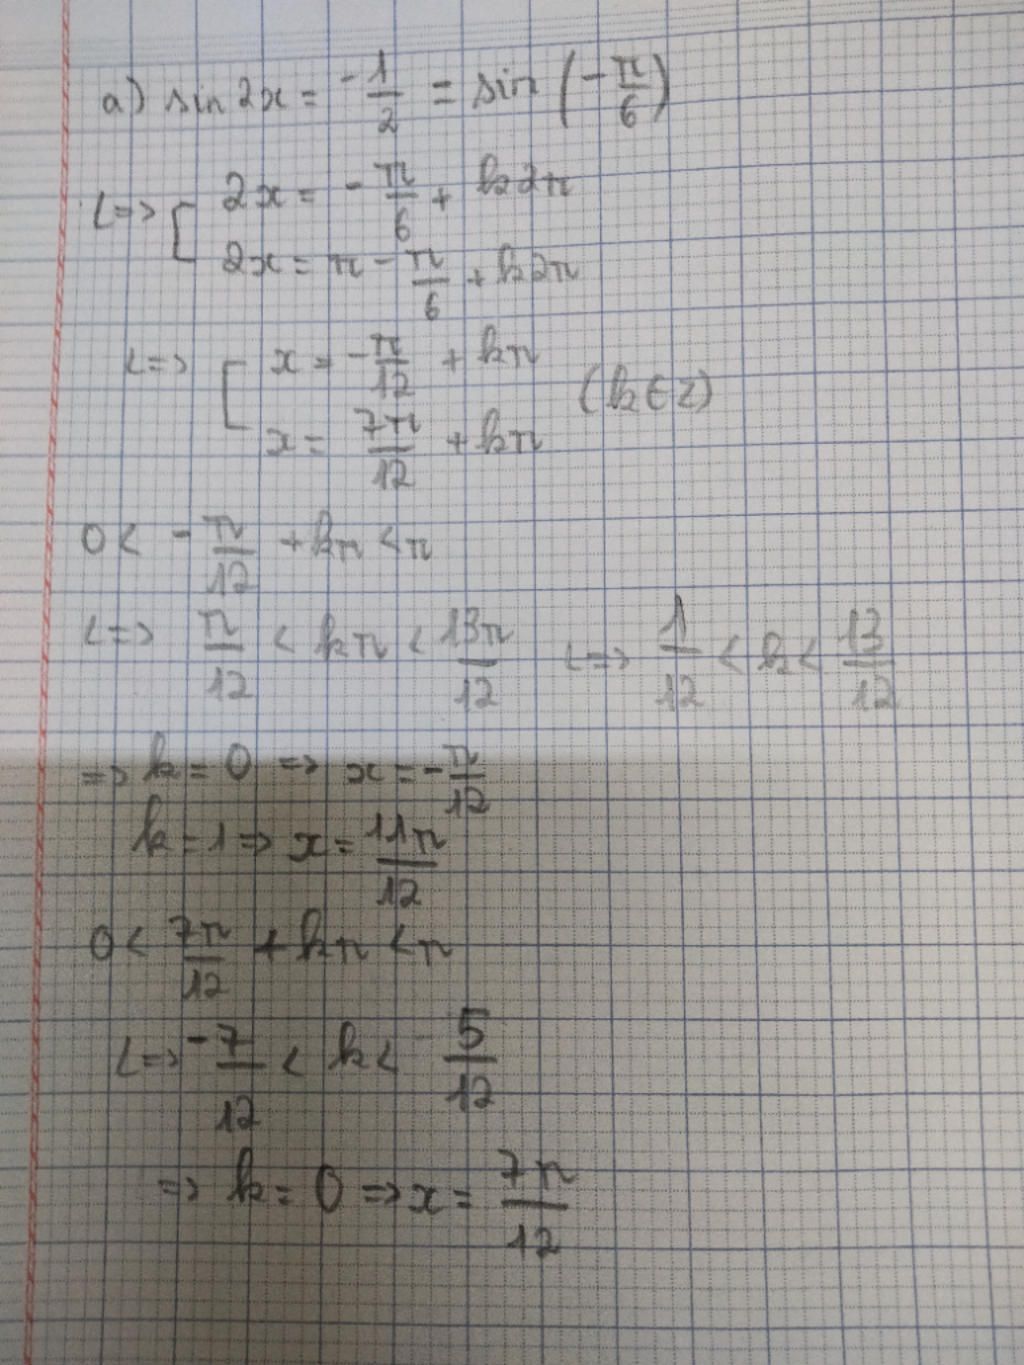 a) sin 2x = -1/2 = sin (-π/6)
<=> [ 2x = -π/6 + k2π
2x = π - π/6 + k2π
<=> [ x = -π/12 + kπ
x = 7π/12 + kπ (k ∈ Z)
0 < -π/12 + kπ < π
<=> π/12 < kπ < 13π/12 <=> 1/12 < k < 13/12
=> k = 0 => x = -π/12
k = 1 => x = 11π/12
0 < 7π/12 + kπ < π
<=> -7/12 < k < 5/12
=> k = 0 => x = 7π/12